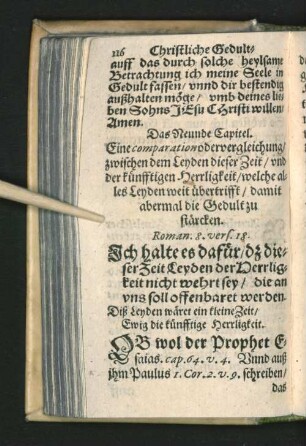 116 Christliche Gedult/
auff das durch solche heylsame
Betrachtung ich meine Seele in
Gedult fassen/ vnnd dir bestendig
außhalten möge/ vmb deines lie=
ben Sohns JEsu CHristi willen/
Amen.
Das Neunde Capitel.
Eine comparation oder vergleichung/
zwischen dem Leyden dieser Zeit/ vnd
der künfftigen Herrligkeit/ welche al=
les Leyden weit übertrifft/ damit
abermal die Gedult zu
stärcken.
Roman. 8. vers. 18.
Ich halte es dafür/ dz die=
ser Zeit Leyden der Herrlig=
keit nicht wehrt sey/ die an
vns soll offenbaret werden.
Diß Leyden wäret ein kleine Zeit/
Ewig die künfftige Herrligkeit.
OB wol der Prophet E=
saias. cap. 64. v. 4. Vnnd auß
jhm Paulus 1. Cor. 2. v. 9. schreiben/
das